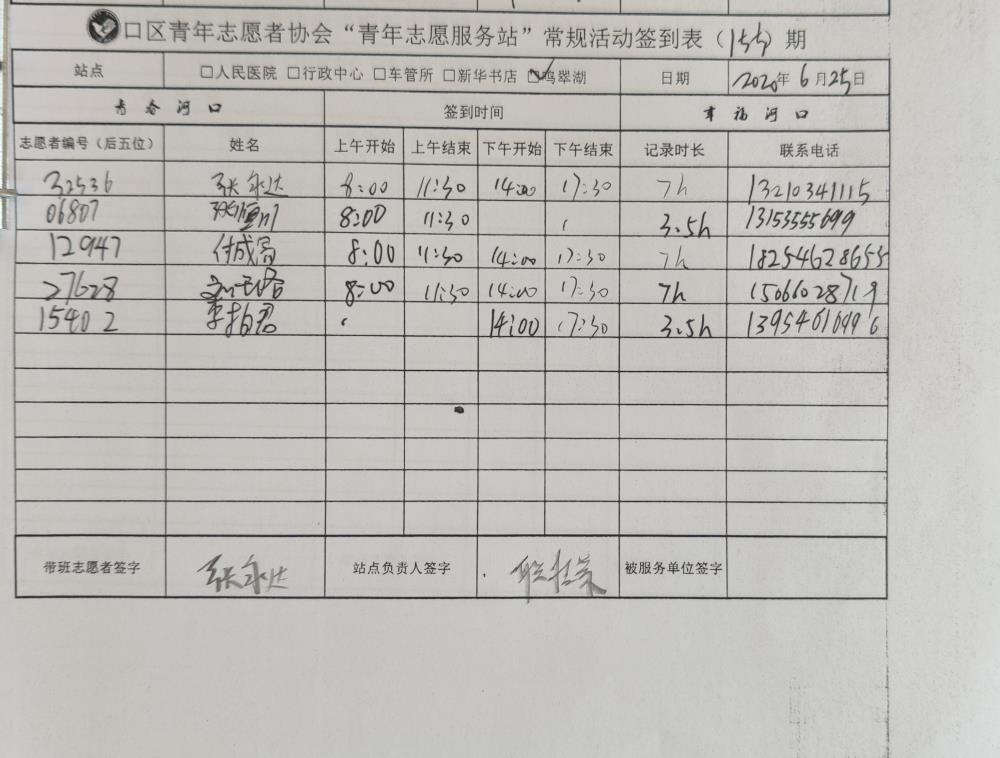 口区青年志愿者协会“青年志愿服务站”常规活动签到表（155）期
站点 □人民医院 □行政中心 □车管所 □新华书店 ☑鸣翠湖 日期 2020年6月25日
青春河口 签到时间 幸福河口
志愿者编号（后五位） 姓名 上午开始 上午结束 下午开始 下午结束 记录时长 联系电话
32536 张永达 8:00 11:30 14:00 17:30 7h 13210341115
06807 8:00 11:30 3.5h 13153555699
12947 付成局 8:00 11:30 14:00 17:30 7h 18254628655
27628 8:00 11:30 14:00 17:30 7h 15066028719
15402 李拍君 14:00 17:30 3.5h
带班志愿者签字 张永达 站点负责人签字 被服务单位签字